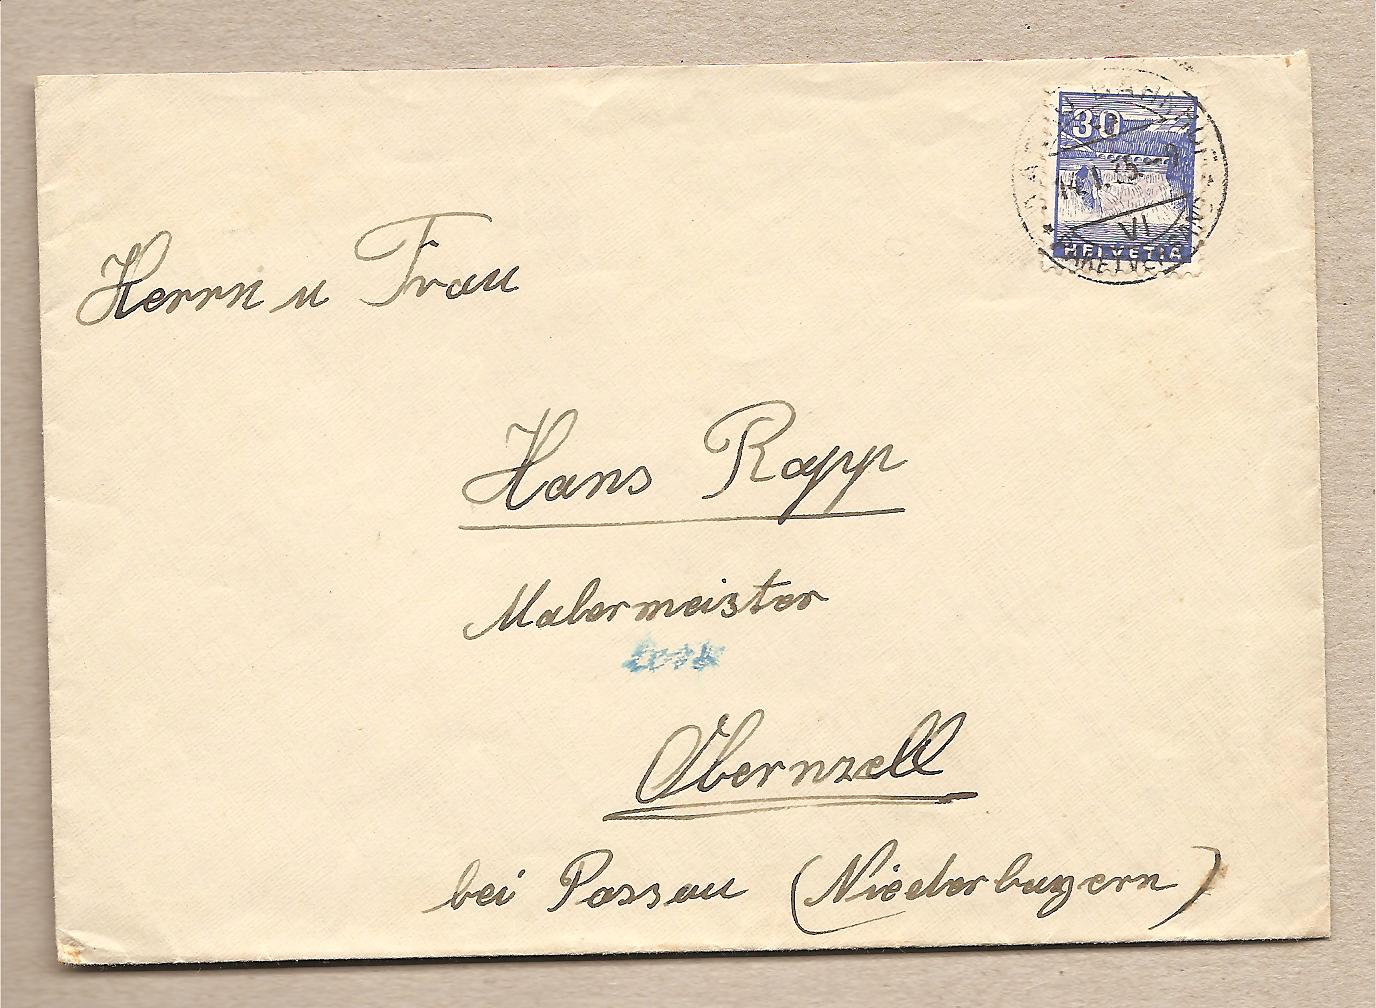 30
14.I.35.-9
VI
HELVETIA
Herrn u Frau
Hans Rapp
Malermeister
Obernzell
bei Passau (Niederbayern)